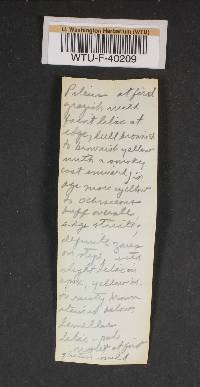 U. Washington Herbarium (WTU)
WTU-F-40209
Pileus at first
grayish, with
faint lilac at
edge, dull brownish
to brownish yellow
with a smoky
cast inwardly, in
age more yellow
or ochraceous
buff overall
edge striate,
definite zones
on stipe, with
slight lilac in
some, yellowish
to rusty brown
stained below,
lamellae
lilac - pale
violet at first